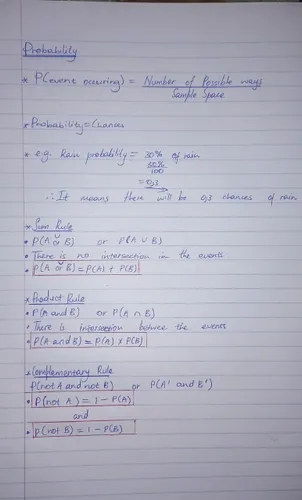 Probability
* P(event occuring) = Number of Possible ways
Sample Space
* Probability = Chances
* e.g. Rain probability = 30% of rain
30%
100
= 0,3
∴ It means there will be 0,3 chances of rain
* Sum Rule
• P(A or B) or P(A ∪ B)
• There is no intersection in the events
• P(A or B) = P(A) + P(B)
* Product Rule
• P(A and B) or P(A ∩ B)
• There is intersection between the events
• P(A and B) = P(A) x P(B)
* Complementary Rule
P(not A and not B) or P(A' and B')
• P(not A) = 1 - P(A)
and
• P(not B) = 1 - P(B)